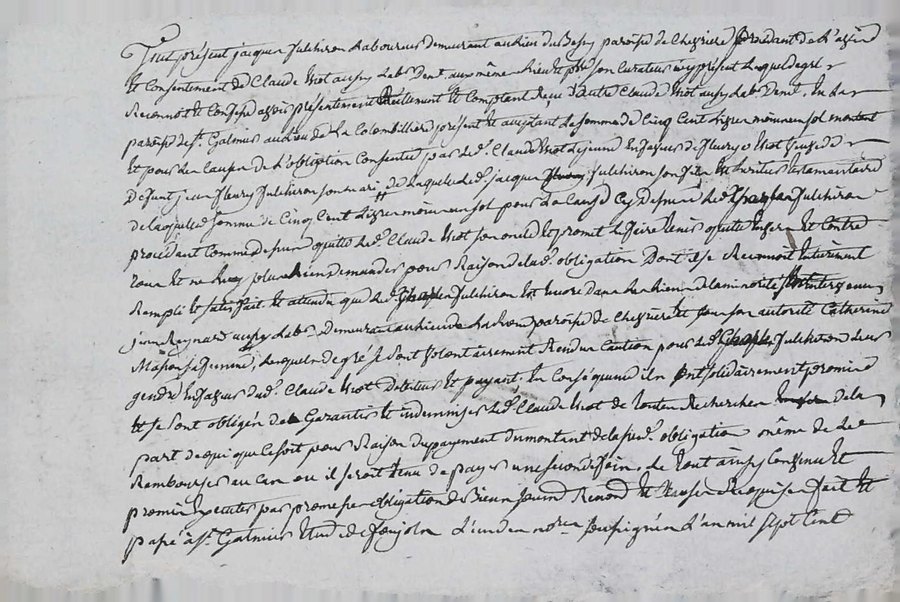 Fut présent jacques fulchiron Laboureur demeurant au lieu du paroisse de Chevriere procédant de L'avis
et Consentement de Claude Niot aussy Lab.r dem.t au même Lieu et p.sse son curateur icy présent Lequel de gré
Reconnoit et Confesse avoir présentement Reellement et Comptant Reçu d'autre Claude Niot aussy Lab.r dem.t en La
paroisse de S.t Galmier au lieu de La Colombilliere présent et acceptant La somme de Cinq Cent Livres moins un sol montant
et pour Les Causes de L'obligation Consentie par Led. Claude Niot Le jeune En faveur de fleurye Niot veuve de
Defunt jean fleury fulchiron son mari, de Laquelle Led. jacques fulchiron son fils est héritier testamentaire
de laquelle somme de Cinq Cent Livres moins un sol pour La Cause Cy Dessus Led. fulchiron
procédant comme dessus quitte Led. Claude Niot son oncle et promet Le faire tenir quitte Envers et Contre
tous et ne Rien plus demander pour Raison de Lad. obligation Dont il se Reconnoit Entièrement
Rempli et satisfait et attendu que Led. fulchiron est encore dans Les Liens de La minorité
jean Reynard aussy Lab.r Demeurant au Lieu de paroisse de Chevriere et sous son autorité Catherine
sa femme, Lesquels de gré se sont volontairement Rendus Caution pour Led. fulchiron Leur
gendre En faveur dud. Claude Niot débiteur et payant, En conséquence ils ont solidairement promis
et se sont obligés de Garantir et indemniser Led. Claude Niot de toutes Recherches de la
part de qui que ce soit pour Raison du payement du montant de la susd. obligation même de Le
Rembourser au Cas ou il seroit tenu de payer une seconde fois. Le tout ainsy Convenu et
promis Executer par promesse obligation de Biens Renond et Clauses Requises fait et
passé à S.t Galmier Etude de L'un des no.res soussignés L'an mil sept Cent